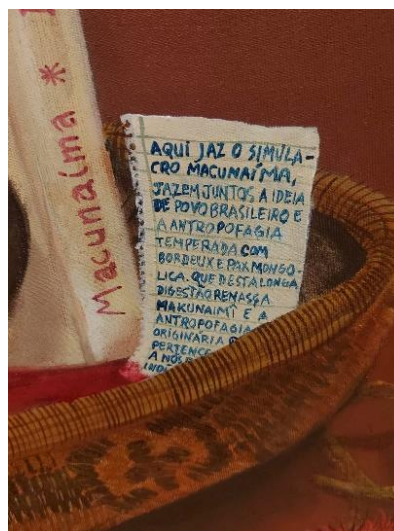 Macunaíma *
AQUI JAZ O SIMULA-
CRO MACUNAÍMA,
JAZEM JUNTOS A IDEIA
DE POVO BRASILEIRO E
A ANTROPOFAGIA
TEMPERADA COM
BORDEUX E PAX MONGO-
LICA. QUE DESTA LONGA
DIGESTÃO RENASÇA
MAKUNAIMÎ E A
ANTROPOFAGIA
ORIGINÁRIA
PERTENCE
A NÓS